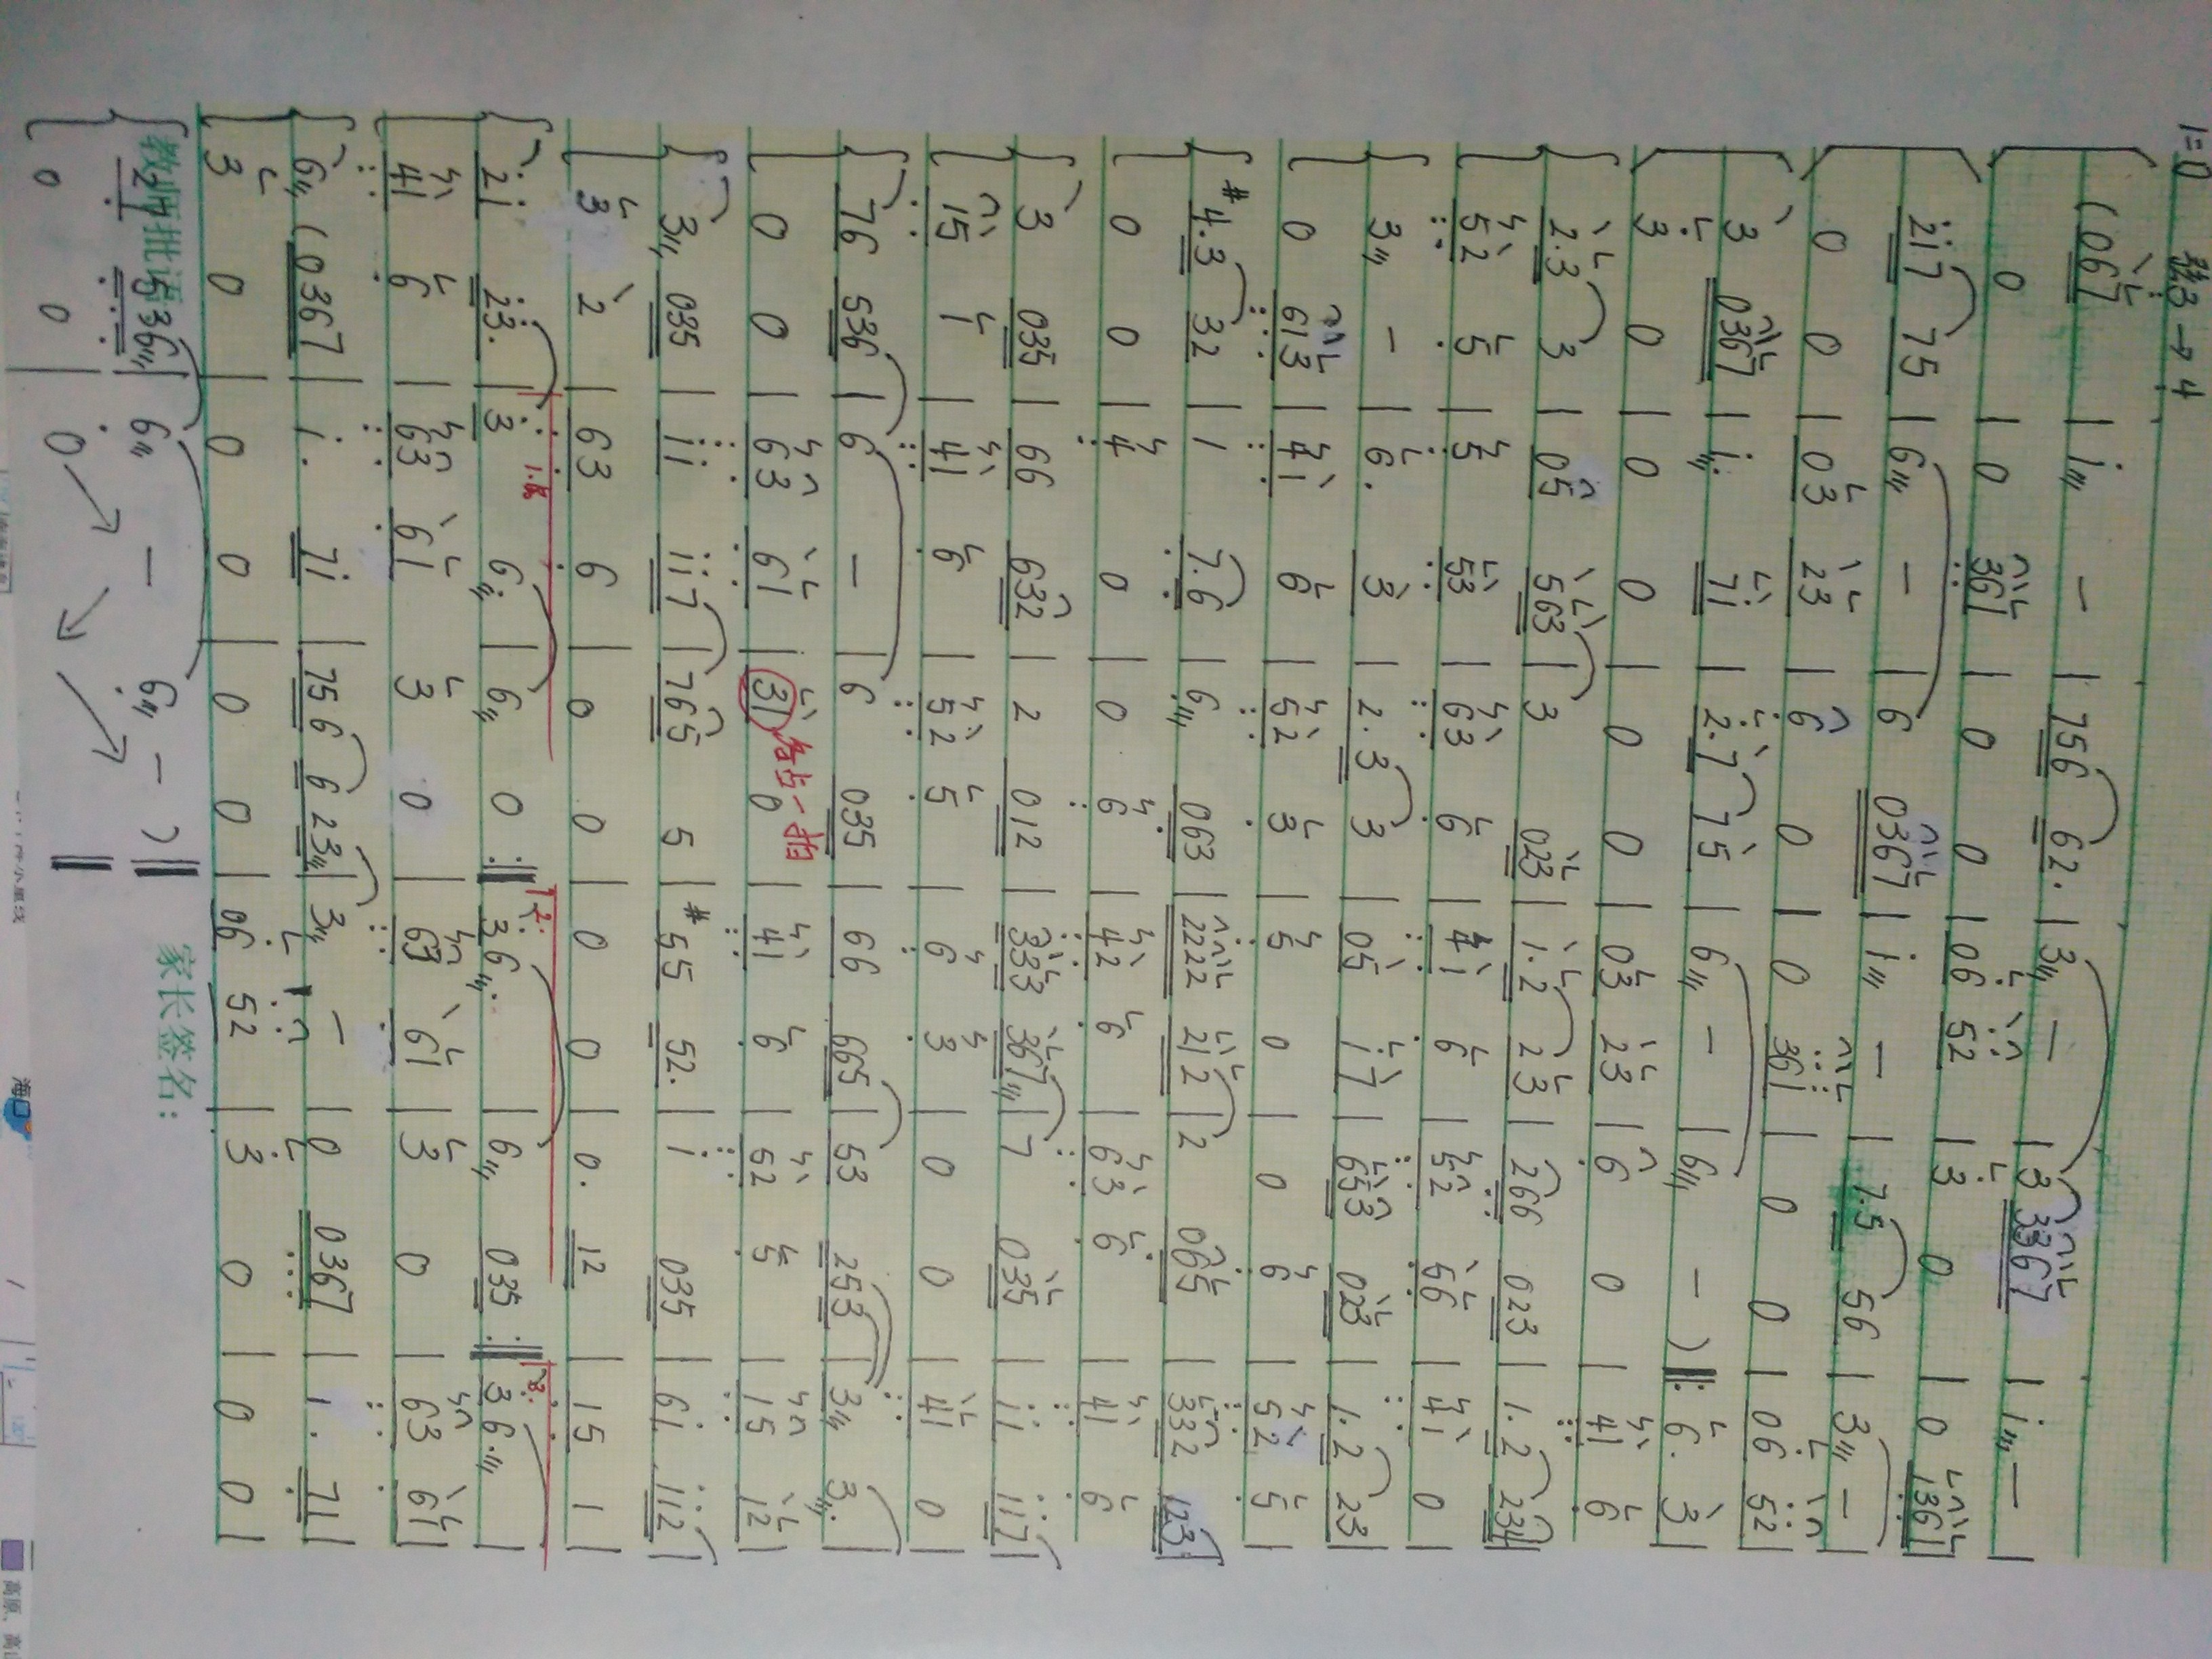 1=D 3→4
(067 | 1 - | 756 62. | 3 - | 3 3367 | 1 -
0 | 0 361 | 0 0 | 06 52 | 3 0 | 0 1361 |
217 75 | 6 - | 6 0367 | 1 - | 7.5 56 | 3 - |
0 0 | 03 23 | 6 0 | 0 361 | 0 0 | 06 52 |
3 0367 | 1. 71 | 2.7 75 | 6 - | 6 - ) ‖: 6. 3 |
3 0 | 0 0 | 0 0 | 03 23 | 6 0 | 41 6
2.3 3 | 05 563 | 3 023 | 1.2 23 | 266 023 | 1.2 234 |
52 5 | 5 53 | 63 6 | 41 6 | 52 56 | 41 0 |
3 - | 6. 3 | 2.3 3 | 05 17 | 653 023 | 1.2 23 |
0 613 | 41 6 | 52 3 | 5 0 | 0 6 | 52 5 |
#4.3 32 | 1 7.6 | 6 063 | 2222 212 | 2 065 | 332 123 |
0 0 | 4 0 | 0 6 | 42 6 | 63 6 | 41 6
3 035 | 66 632 | 2 012 | 3333 367 | 7 035 | 11 117 |
15 1 | 41 6 | 52 5 | 6 3 | 0 0 | 41 0 |
76 536 | 6 - | 6 035 | 66 665 | 53 253 | 3 3. |
0 0 | 63 61 | 31 0 | 41 6 | 52 5 | 15 12 |
各占一拍
3 035 | 11 117 | 765 5 | #55 52. | 1 035 | 61 112 |
3 2 | 63 6 | 0 0 | 0 0 | 0. 12 | 15 1 |
21 23. | 3 6 | 6 0 :‖ 36. | 6 035 :‖ 36. |
41 6 | 63 61 | 3 0 | 63 61 | 3 0 | 63 61 |
6 (0367 | 1. 71 | 756 623 | 3 - | 0 0367 | 1. 71 |
3 0 | 0 0 | 0 0 | 06 52 | 3 0 | 0 0 |
教师批语
家长签名：
21 536 | 6 - 6 - ) ‖
0 0 | 0
海口
高原、高山